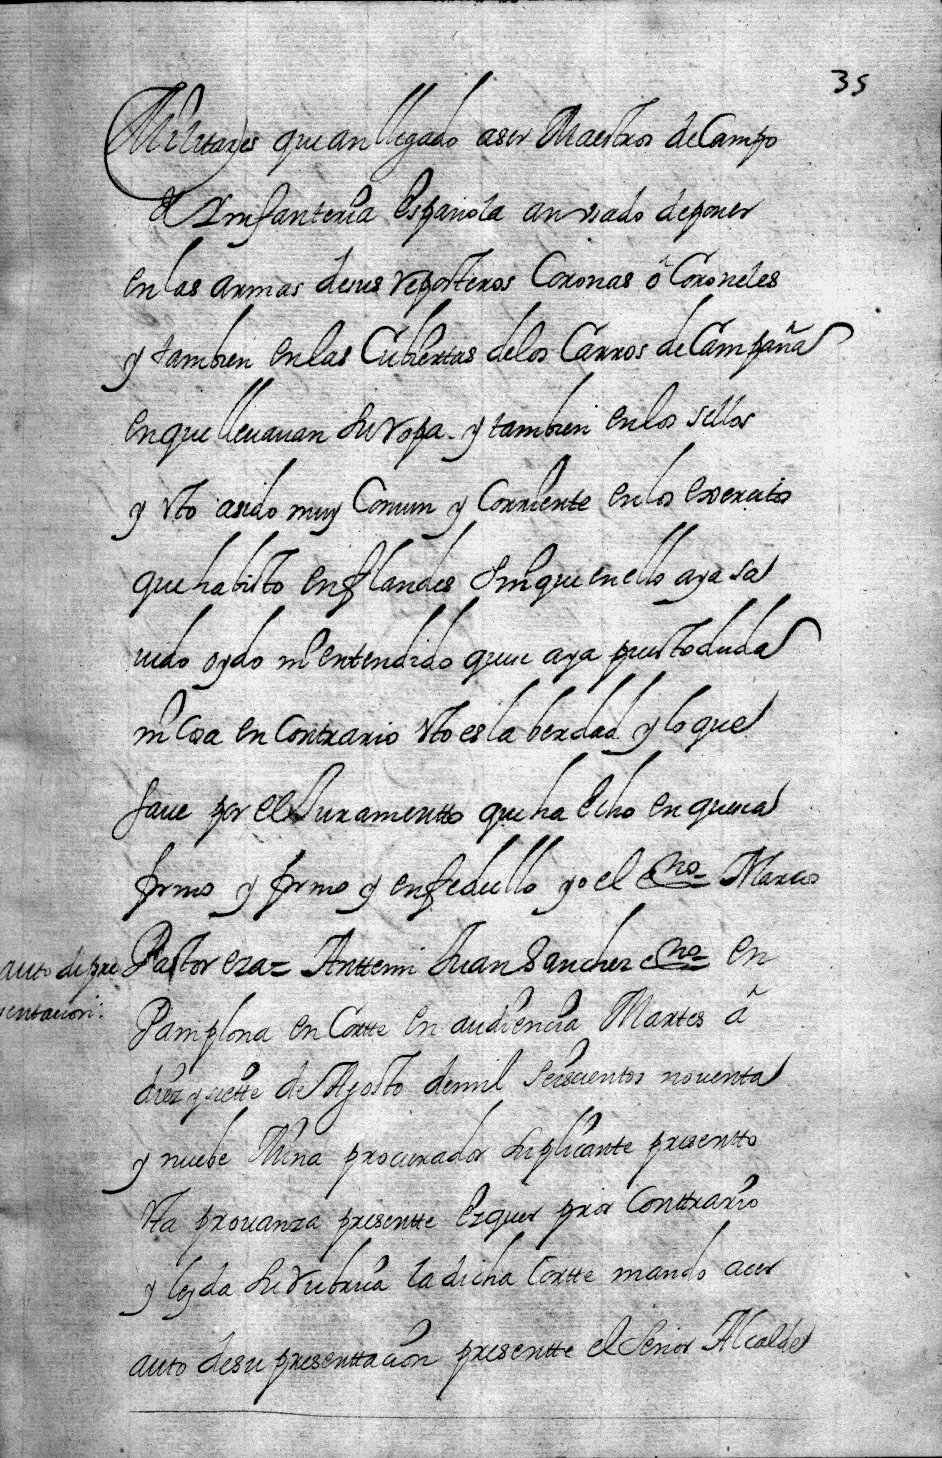 35
Militares que an llegado a ser Maestros de Campo
de Ymfanteria Española an usado de poner
en las armas de sus reposteros Coronas ó Coroneles
y tambien en las Cubiertas de los Carros de Campaña
en que lleuauan su ropa y tambien en los sellos
y esto a sido muy Comun y Corriente en los exercitos
que ha bisto en flandes sin que en ello aya sa
uido oydo ni entendido que se aya puesto duda
ni Cosa en Contrario esto es la berdad y lo que
saue por el Juramentto que ha echo en que se a
firmo y firmo y en fe de ello yo el esno Marcos
Pastor eza= Anttemi Juan Sanchez esno en
auto de pre
sentacion:
Pamplona en Cortte en audiencia Martes â
diez y siette de Agosto de mil seiscientos nouenta
y nuebe Mina procurador suplicante presentto
esta prouanza presentte Ezquer pror Conttrario
y leyda su rubrica la dicha Cortte mando acer
auto de su presenttacion presentte el Señor Alcalde